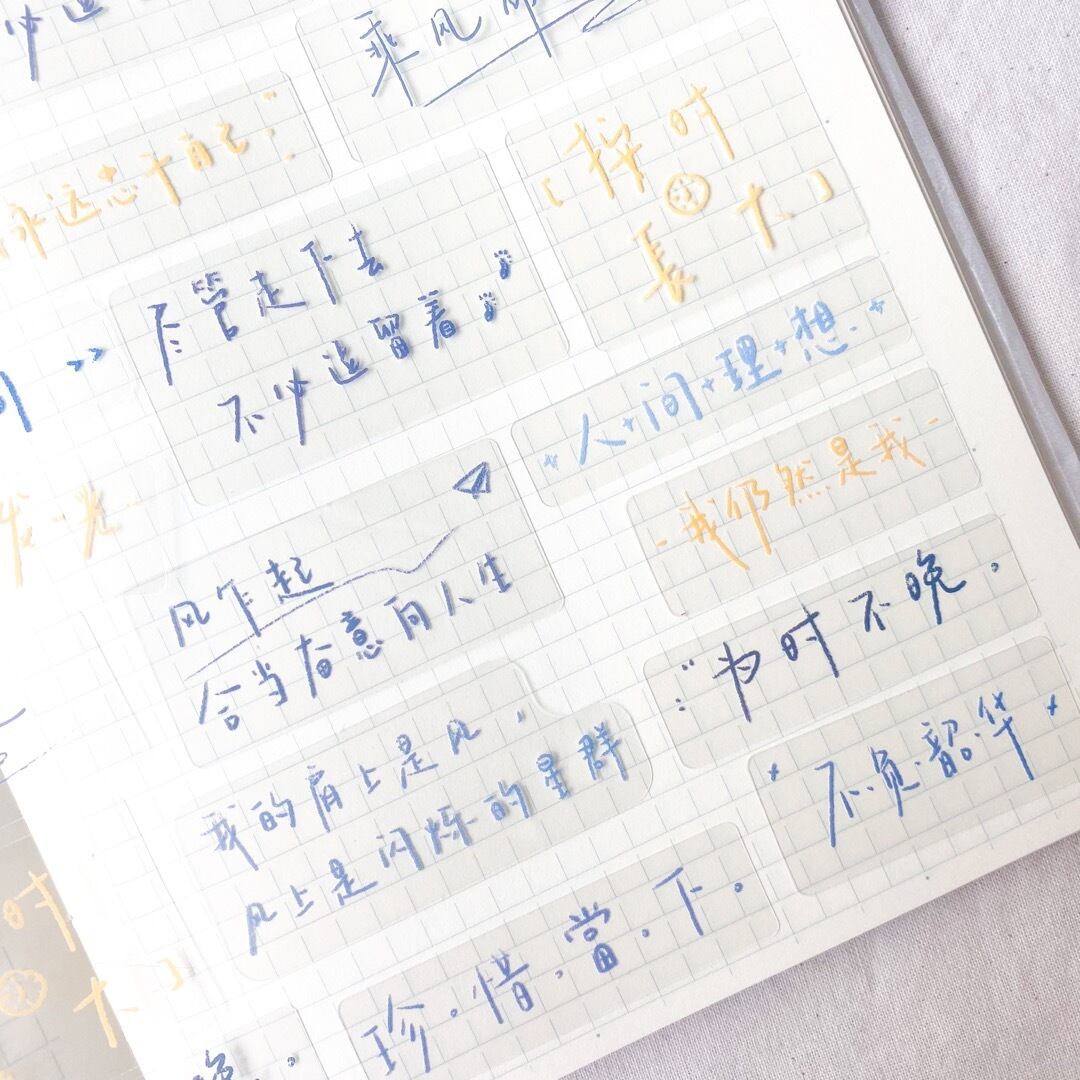 必
乘风
永远忠于自己
「择时
长大」
尽管走下去
不必逗留着
人+间+理+想
我仍然是我
发光
风乍起
合当奋意向人生
为时不晚
我的肩上是风
风上是闪烁的星群
不负韶华
时
大」
珍.惜.當.下.
晚.